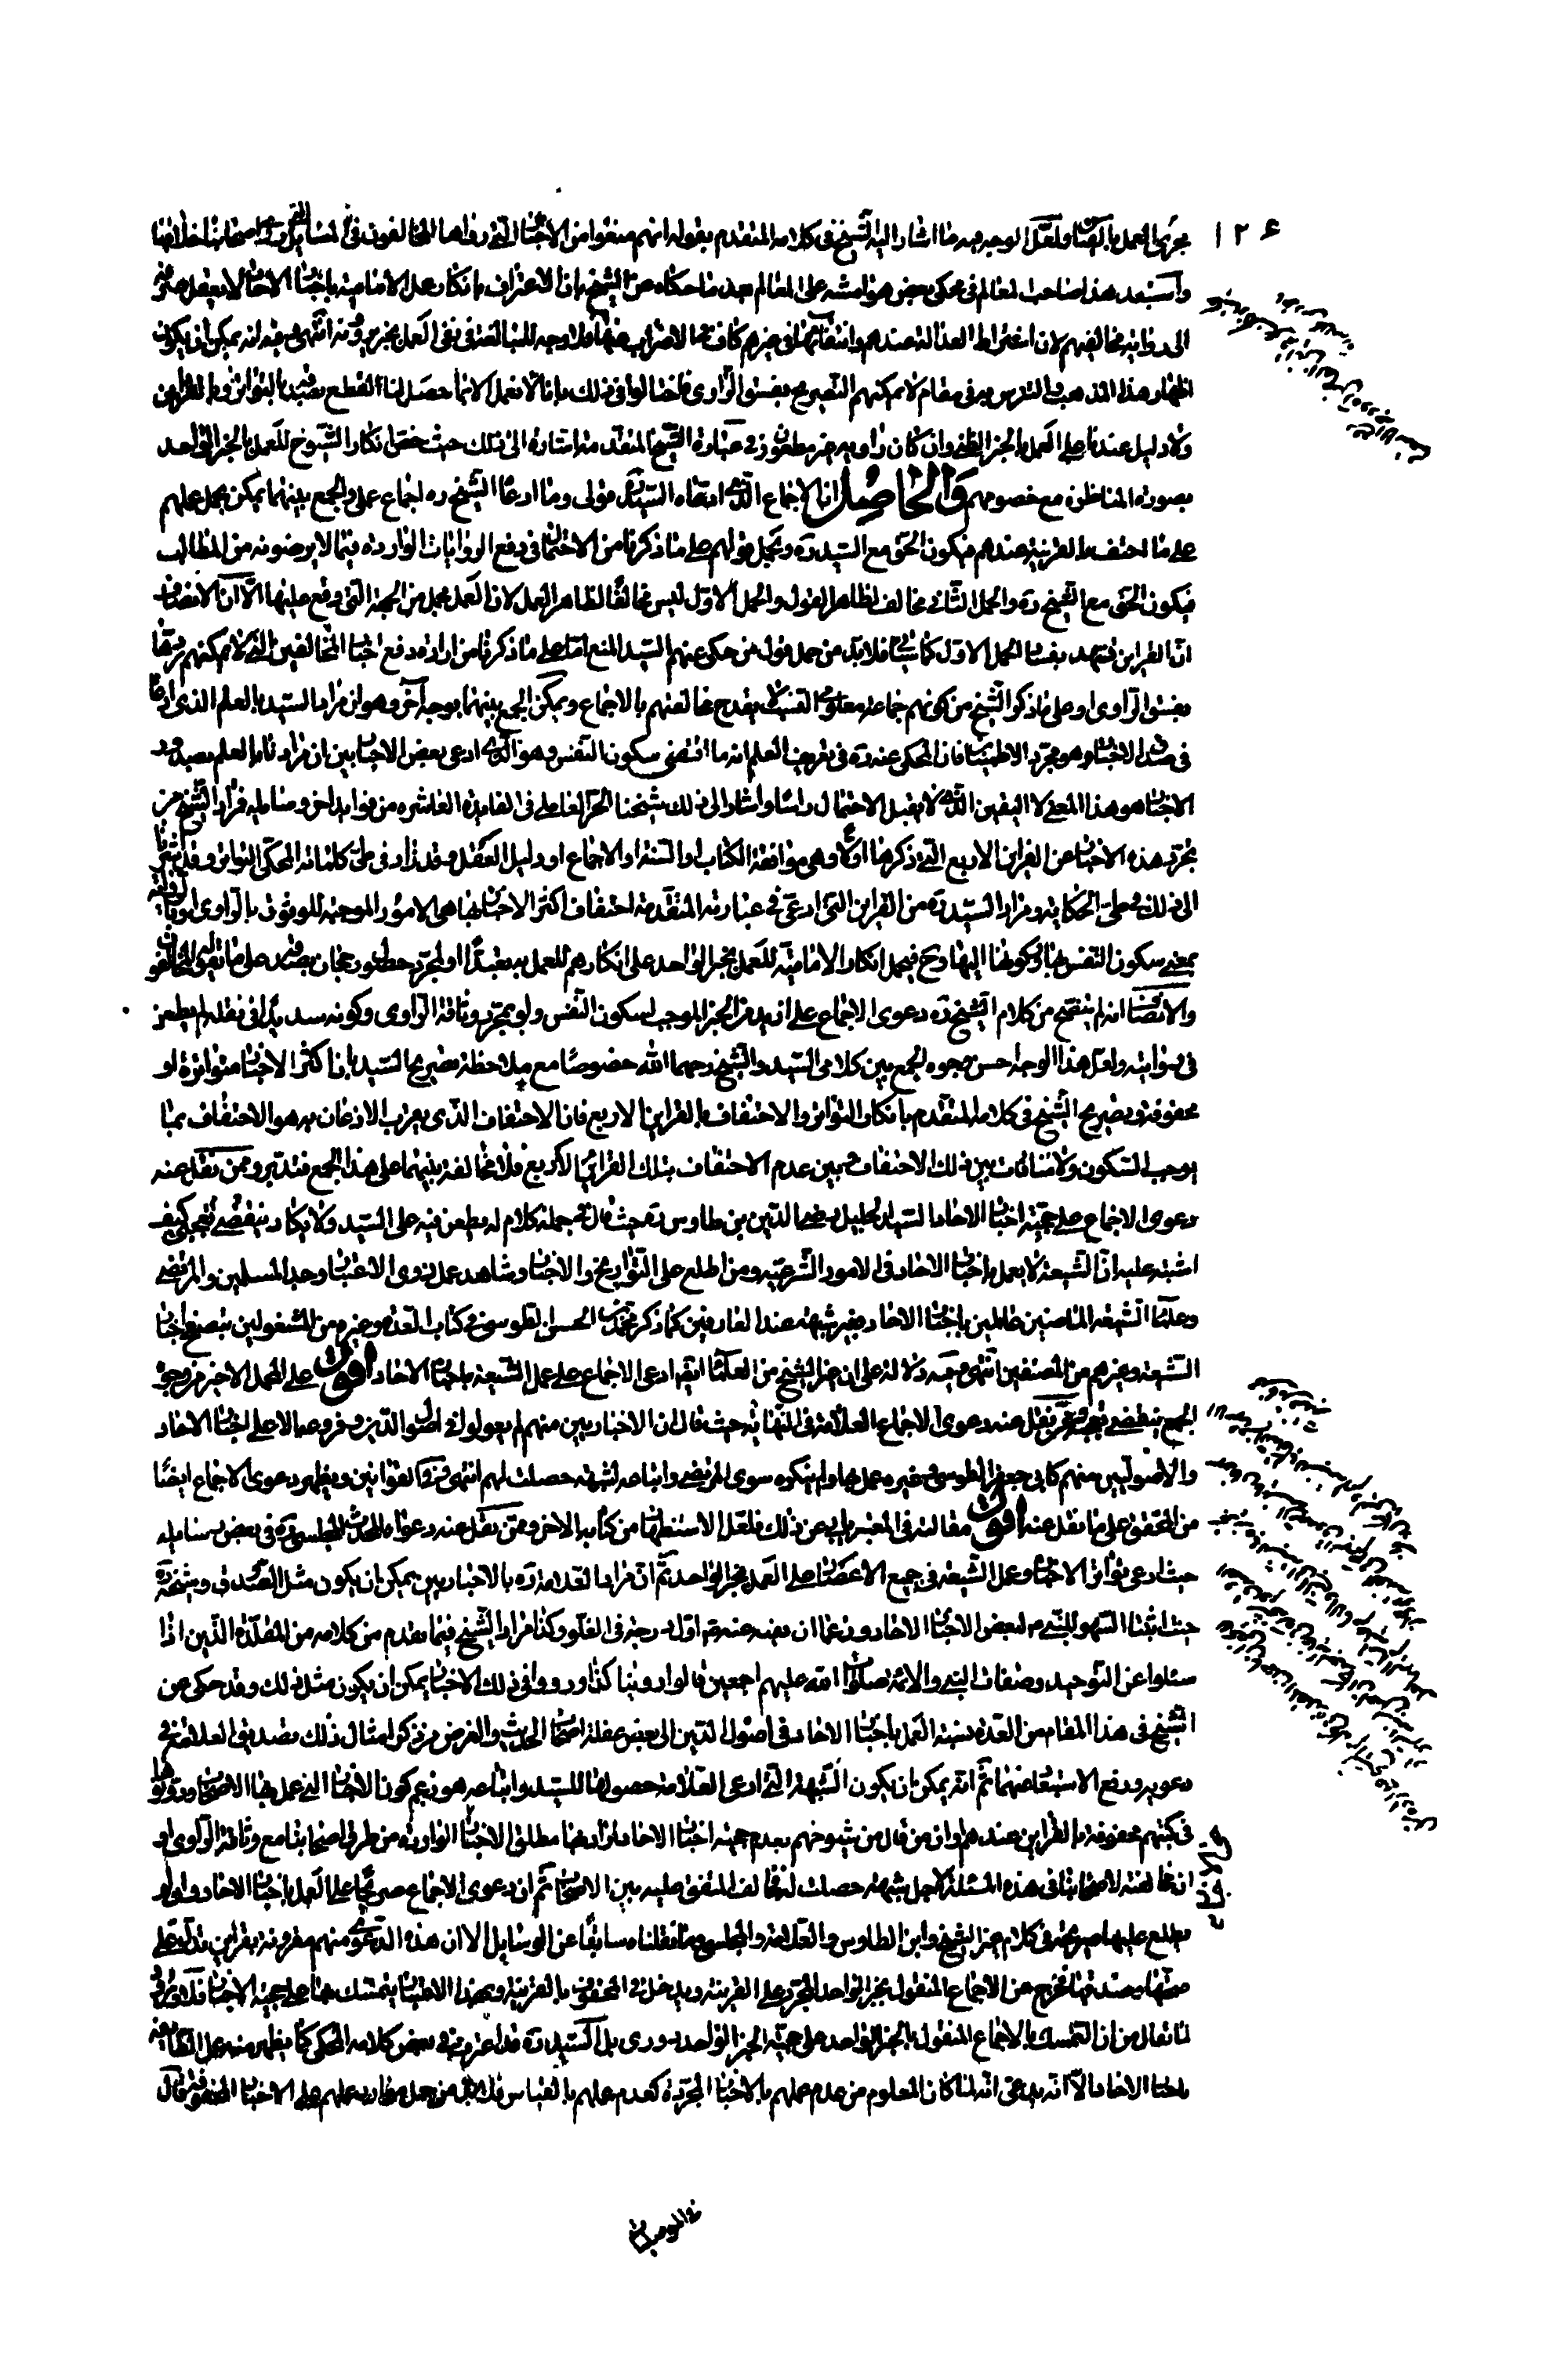 ١٢٤
مجرى العمل بالقياس ولعل الوجه فيه ما اشار اليه الشيخ في كلامه المتقدم بقوله انهم منعوا من الاخبار التي رواها المخالفون في المسائل التي روى اصحابنا خلافها
واستبعد هذا صاحب المعالم في محكى بعض هوامشه على المعالم بعد ما حكاه عن الشيخ بان الاعتراف بانكار عمل الامامية باخبار الاحاد لا يعقل صرفه
الى روايات مخالفيهم لان اشتراط العدالة عندهم وانتفائها في غيرهم كاف في الاضراب عنها فلا وجه للمبالغة في نفى العمل بخبر يروونه انتهى وفيه انه يمكن ان يكون
اظهار هذا المذهب والتجنن به في مقام لا يمكنهم التصريح بفسق الراوى فاحتالوا في ذلك بانا لا نعمل الا بما حصل لنا القطع بصدقه بالتواتر او بالقراين
ولا دليل عندنا على العمل بالخبر الظنى وان كان راويه غير مطعون وفي عبارة الشيخ المتقدمة اشارة الى ذلك حيث خص انكار الشيوخ للعمل بالخبر الواحد
بصورة المناظرة مع خصومهم والحاصل ان الاجماع الذى ادعاه السيد ره قولى وما ادعاه الشيخ ره اجماع عملى والجمع بينهما يمكن بحمل عملهم
على ما احتف بالقرينة عندهم فيكون الحق مع السيد ره وبحمل قولهم على ما ذكرنا من الاحتمال في دفع الروايات الواردة فيما لا يرضونه من المطالب
فيكون الحق مع الشيخ ره والحمل الثانى مخالف لظاهر القول والحمل الاول ليس مخالفا لظاهر العمل لان العمل مجمل من الجهة التى وقع عليها الا ان الانصاف
ان القراين تشهد بفساد الحمل الاول كما سيأتى فلا بد من حمل قول من حكى عنهم السيد المنع اما على ما ذكرنا من ارادة دفع اخبار المخالفين التى لا يمكنهم ردها
بفسق الراوى او على ما ذكره الشيخ من كونهم جماعة معلومى النسب لا يقدح مخالفتهم بالاجماع ويمكن الجمع بينهما بوجه آخر وهو ان مراد السيد بالعلم الذى ادعاه
في صدق الاخبار هو مجرد الاطمينان فان المحكى عنه ره في تعريف العلم انه ما اقتضى سكون النفس وهو الذى ادعى بعض الاخباريين ان مرادنا بالعلم بصدور
الاخبار هو هذا المعنى لا اليقين الذى لا يقبل الاحتمال راسا واشار الى ذلك شيخنا الحر العاملى في الفايدة العاشرة من فوايد اخر وسائله فمراد الشيخ من
تجرد هذه الاخبار عن القراين الاربع التى ذكرها اولا وهى موافقة الكتاب او السنة او الاجماع او دليل العقل وقد زاد في طى كلماته المحكى التواتر وقد اشرنا
الى ذلك في طى الحكاية ومراد السيد ره من القراين التى ادعى في عبارته المتقدمة احتفاف اكثر الاخبار بها هى الامور الموجبة للوثوق بالراوى او بالرواية
بمعنى سكون النفس بها وركونها اليها وح فيحمل انكار الامامية للعمل بخبر الواحد على انكارهم للعمل به تعبدا او لمجرد حصول رجحان بصدقه على ما يقوله المخالفون
والانصاف انه لم يتضح من كلام الشيخ ره دعوى الاجماع على ازيد من الخبر الموجب لسكون النفس ولو بمجرد وثاقة الراوى وكونه سديدا في نقله لم يطعن
في روايته ولعل هذا الوجه احسن وجوه الجمع بين كلامى السيد والشيخ رحمهما الله خصوصا مع ملاحظة تصريح السيد بان اكثر الاخبار متواترة او
محفوفة وتصريح الشيخ في كلامه المتقدم بانكار التواتر والاحتفاف بالقراين الاربع فان الاحتفاف الذى يعرب الاذعان به هو الاحتفاف بما
يوجب السكون ولا منافات بين ذلك الاحتفاف وبين عدم الاحتفاف بتلك القراين الاربع فلا مخالفة بينهما على هذا الجمع فتدبر وممن نقل عنه
دعوى الاجماع على حجية اخبار الاحاد السيد الجليل رضى الدين بن طاوس ره حيث قال في جملة كلام له يطعن فيه على السيد ولا يكاد ينقضى تعجبى كيف
اشتبه عليه ان الشيعة لا يعمل باخبار الاحاد في الامور الشرعية ومن اطلع على التواريخ والاخبار وشاهد عمل ذوى الاعتبار وجد المسلمين والمرتضى
وعلماء الشيعة الماضين عاملين باخبار الاحاد بغير شبهة عند العارفين كما ذكر محمد بن الحسن الطوسى في كتاب العدة وغيره من المشغولين بتصفح اخبار
الشيعة وغيرهم من المصنفين انتهى وفيه دلالة على ان غير الشيخ من العلماء ايضا ادعى الاجماع على عمل الشيعة باخبار الاحاد اقول على الحمل الاخير من وجوه
الجمع ينقضى تعجبه وممن نقل عنه دعوى الاجماع العلامة في النهاية حيث قال ان الاخباريين منهم لم يعولوا في اصول الدين وفروعه الا على اخبار الاحاد
والاصوليين منهم كابى جعفر الطوسى وغيره عمل بها ولم ينكره سوى المرتضى واتباعه لشبهة حصلت لهم انتهى وفي القوانين ويظهر دعوى الاجماع ايضا
من المحقق على ما نقل عنه اقول مقالته في المعتبر يابى عن ذلك فلعل الاستظهار من كتابه الاخر وممن نقل عنه دعواه المحدث المجلسى ره في بعض رسايله
حيث ادعى تواتر الاخبار وعمل الشيعة في جميع الاعصار على العمل بخبر الواحد ثم ان مراد العلامة ره بالاخباريين يمكن ان يكون مثل الصدوق وشيخه ره
حيث اثبتا السهو للنبى ص لبعض الاخبار الاحاد وزعما ان نفيه عنه ص اول درجة في الغلو وكذا مراد الشيخ فيما تقدم من كلامه من المقلدة الذين اذا
سئلوا عن التوحيد وصفات النبى والائمة صلوات الله عليهم اجمعين قالوا روينا كذا ورووا في ذلك الاخبار يمكن ان يكون مثل ذلك وقد حكى عن
الشيخ في هذا المقام من العدة نسبة العمل باخبار الاحاد في اصول الدين الى بعض غفلة اصحاب الحديث والغرض من ذكر امثال ذلك تصديق العلامة في
دعويه ودفع الاستبعاد عنهما ثم انه يمكن ان يكون الشبهة التى ادعى العلامة حصولها للسيد واتباعه هو زعم كون الاخبار التى عمل بها الاصحاب ودونوها
في كتبهم محفوفة بالقراين عندهم او ان من قال من شيوخهم بعدم حجية اخبار الاحاد اراد بها مطلق الاخبار الواردة من طرق اصحابنا مع وثاقة الراوى او
ان مخالفته لاصحابنا في هذه المسئلة لاجل شبهة حصلت له فخالف المتفق عليه بين الاصحاب ثم ان دعوى الاجماع صريحا على العمل باخبار الاحاد وان لم
نطلع عليها صريحة في كلام غير الشيخ وابن الطاوس والعلامة والمجلسى وما نقلناه سابقا عن الوسايل الا ان هذه الدعوى منهم مقرونة بقراين تدل على
صحتها وصدقها فخرج عن الاجماع المنقول بخبر الواحد المجرد على القرينة ويدخل في المحفوف بالقرينة وبهذا الاعتبار يتمسك بها على حجية الاخبار فلا يرد
ما يقال من ان التمسك بالاجماع المنقول بالخبر الواحد على حجية الخبر الواحد دورى بل السيد ره قد اعترف في بعض كلامه المحكى كما يظهر منه بعمل الطائفة
باخبار الاحاد الا انه يدعى انه لما كان المعلوم من عدم عملهم بالاخبار المجردة كعدم عملهم بالقياس فلا بد من حمل موارد عملهم على الاخبار المحفوفة قال
في الموصليات